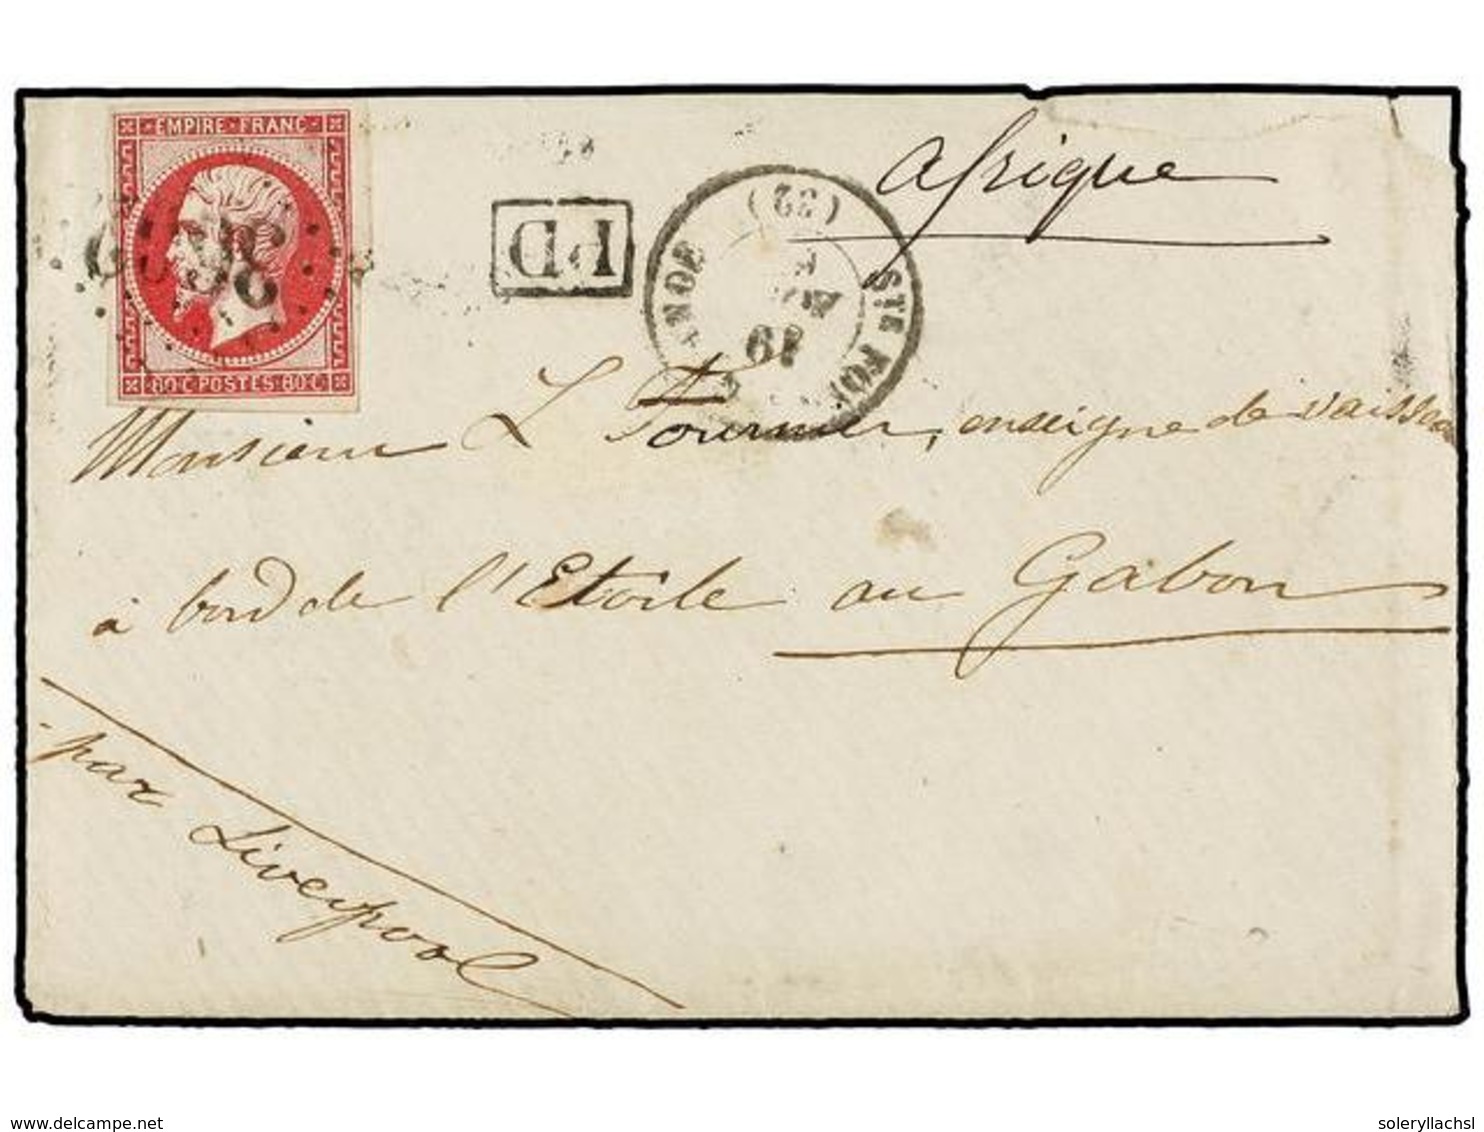 EMPIRE FRANC
80 C POSTES 80 C
PD
(32)
STE FOY
ANDE
19
Afrique
Monsieur L Fournier, enseigne de vaisseau
à bord de l'Etoile au Gabon
par Liverpool
www.delcampe.net
soleryllachsl